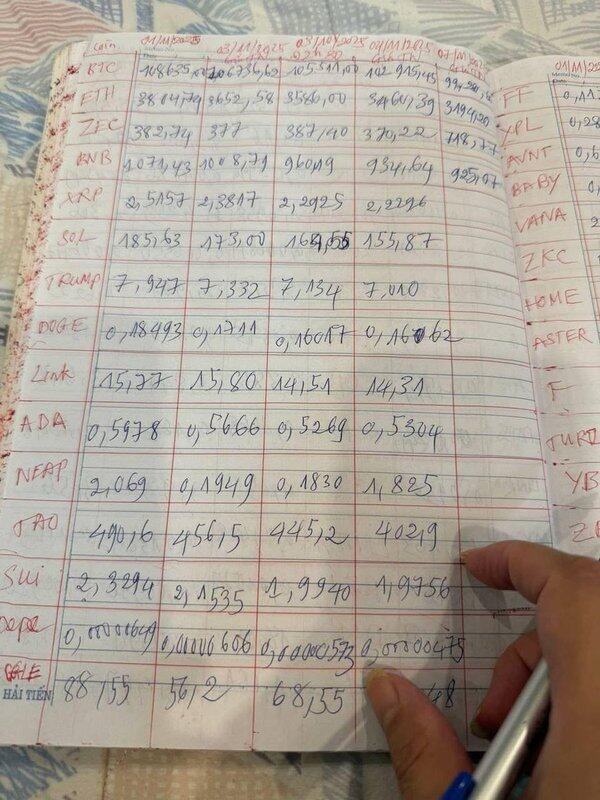 Coin 01/11/2025 03/11/2025 03/10/2025 04/11/2025 07/11/2025
BTC 108635,00 106736,62 105311,00 102 915,45
ETH 3804,74 3652,58 3580,00 3460,39 3194,20
ZEC 382,74 377 387,40 370,22 718,77
BNB 1071,43 1008,71 960,19 934,64 925,07
XRP 2,5157 2,3817 2,2925 2,2296
SOL 185,63 173,00 164,55 155,87
TRUMP 7,947 7,332 7,134 7,010
DOGE 0,18493 0,1711 0,16017 0,16062
Link 15,77 15,80 14,51 14,31
ADA 0,5978 0,5666 0,5269 0,5304
NEAP 2,069 0,1949 0,1830 1,825
TAO 490,6 456,5 445,2 402,9
SUI 2,3294 2,1535 1,9940 1,9756
pepe 0,00000649 0,00000606 0,00000573 0,00000475
88,55 56,2 68,55 48
HẢI TIẾN
01/11/202
FF 0,11
XPL 0,28
AVNT 0,6
BABY 0,
VANA 2
ZKC
HOME
ASTER
F
TURT
YB
Z